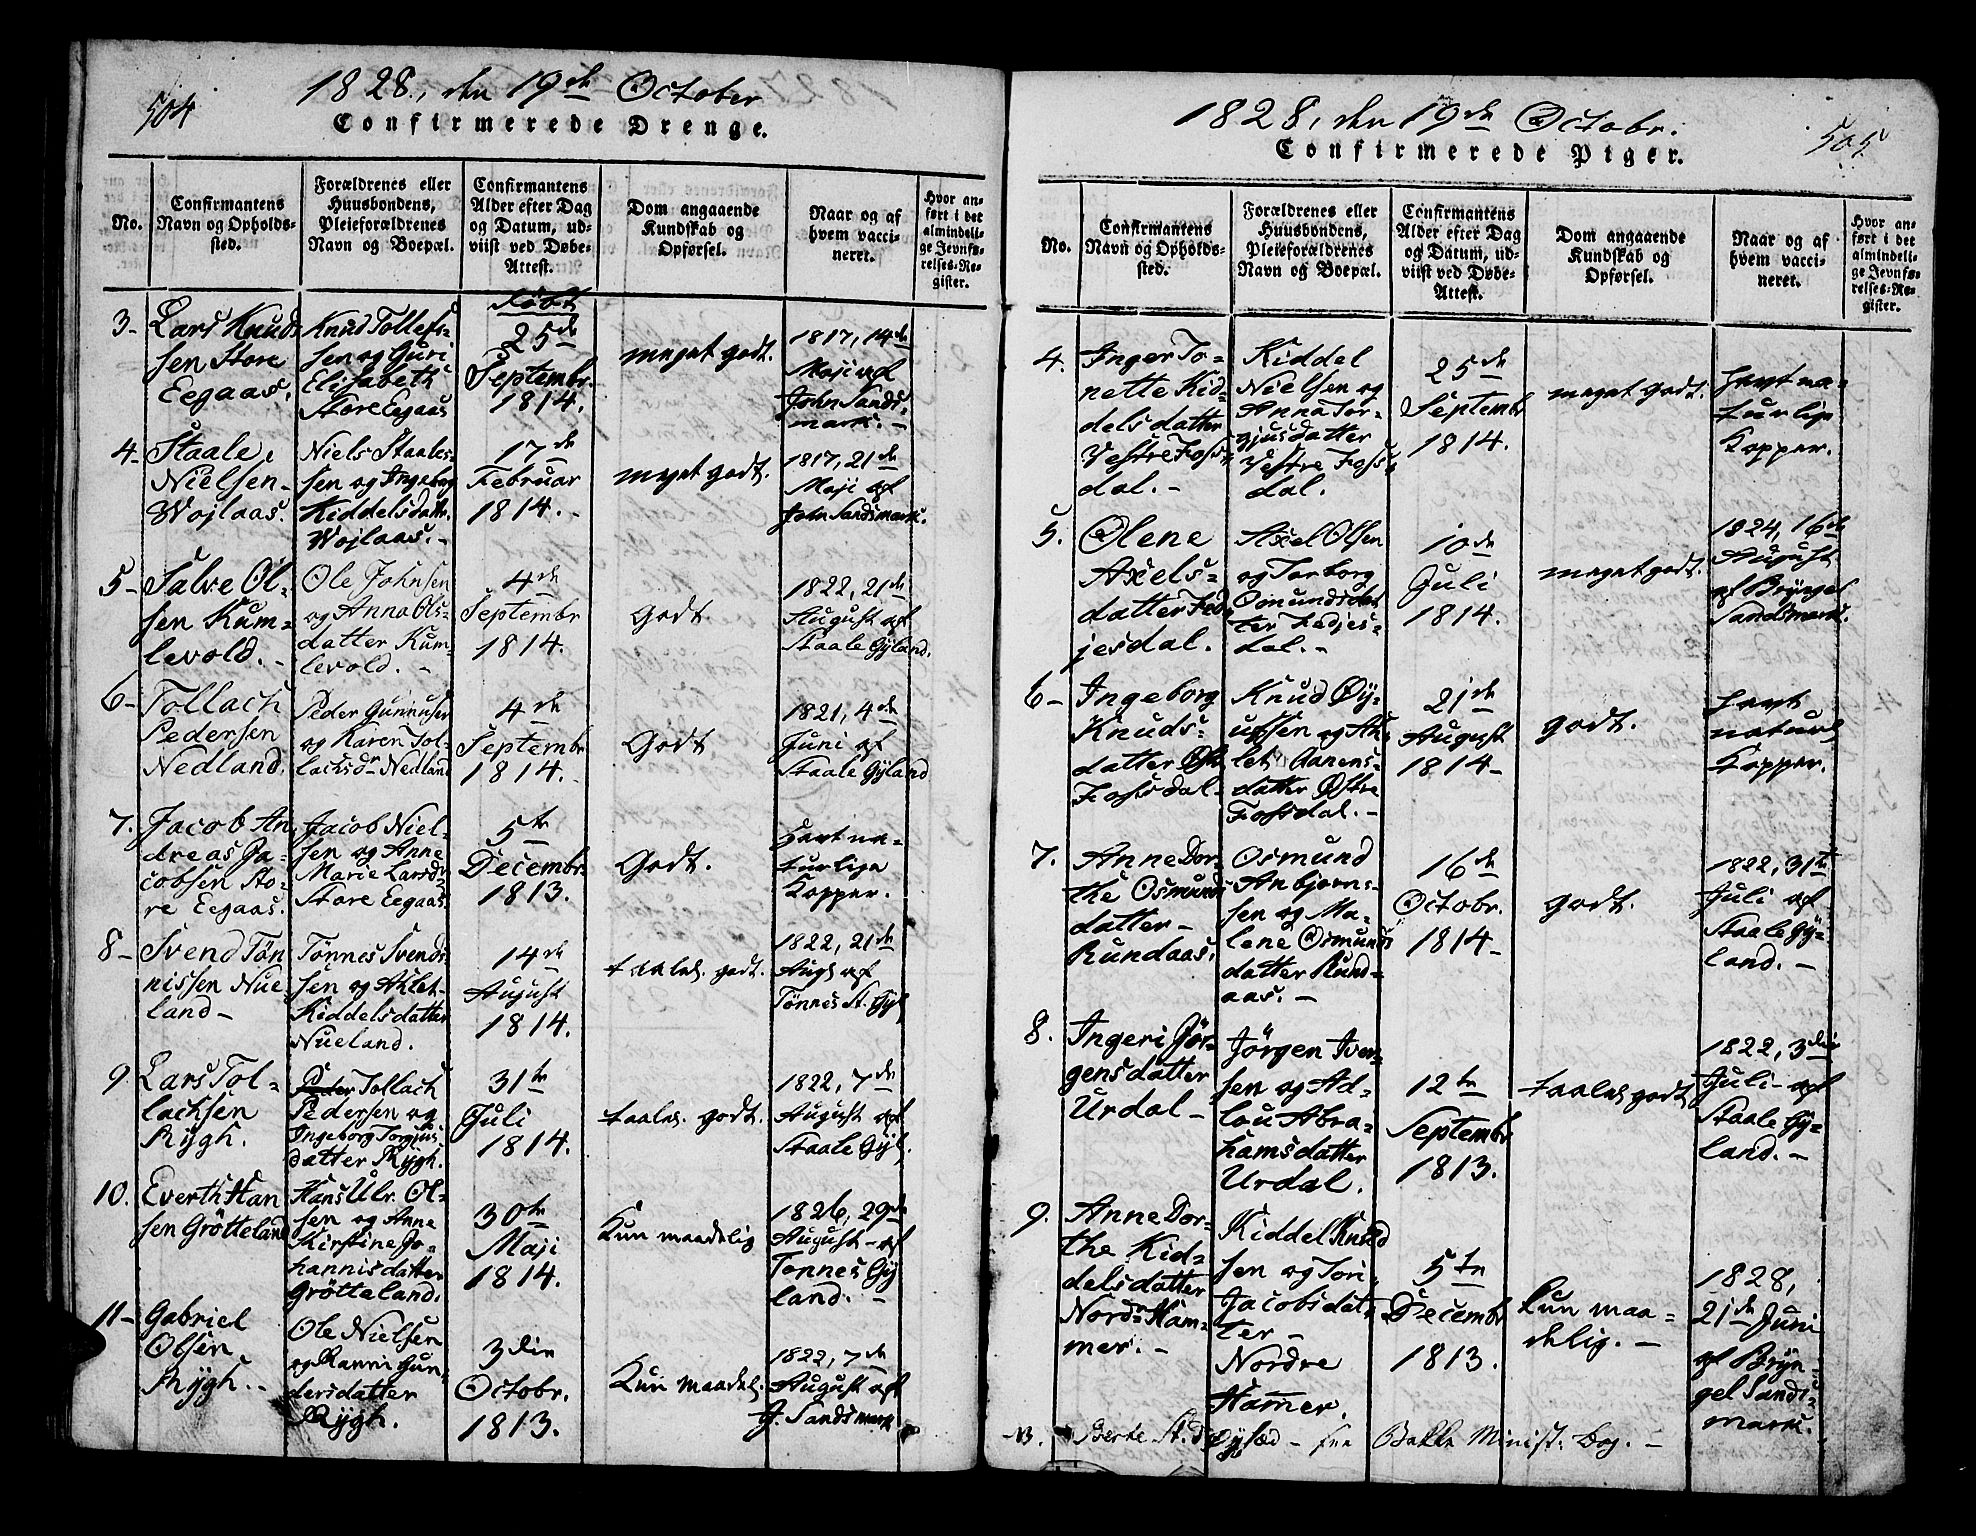 504
1828, den 19de October
Confirmerede Drenge.
No.
Confirmantens
Navn og Opholds-
sted.
Forældrenes eller
Huusbondens,
Pleieforældrenes
Navn og Boepæl.
Confirmantens
Alder efter Dag
og Datum, ud-
viist ved Døbe-
Attest.
Dom angaaende
Kundskab og
Opførsel.
Naar og af
hvem vacci-
neret.
Hvor an-
ført i det
almindeli-
ge Jevnfø-
relses-Re-
gister.
3-
Lars Knud-
sen Store
Eegaas.
Knud Tollefs-
sen og Guri
Elisabeth
Store Eegaas
Født
25de
Septembr.
1814.
meget godt.
1817, 14de
Maji af
John Sands-
mark. -
4-
Staale
Nielsen
Wojlaas.
Niels Staales-
sen og Ingeborg
Kiddelsdattr.
Wojlaas. -
17de
Februar
1814. -
meget godt.
1817, 21de
Maji af
John Sandsmark.
5-
Salve Ol-
sen Kum-
levold. -
Ole Johnsen
og Anna Ols-
datter Kum-
levold. -
4de
Septembr
1814.
Godt
1822, 21de
August af
Staale Gyland.
6-
Tollach
Pedersen
Nedland.
Peder Gunnusen
og Karen Tol-
lachsdr Nedland
4de
Septembr
1814. -
Godt
1821, 4de
Juni af
Staale Gyland
7.
Jacob An-
dreas Ja-
cobsen Sto-
re Eegaas.
Jacob Niel-
sen og Anne
Marie Larsdr
Store Eegaas.
5te
Decembr.
1813.
Godt.
Havt na-
turlige
Kopper.
8-
Svend Tøn-
nissen Nue-
land -
Tønnes Svends-
sen og Ahlet
Kiddelsdatter
Nueland.
14de
August
1814.
taalel. godt.
1822, 21de
Augs af
Tønnes St. Gyl.
9.
Lars Tol-
lachsen
Rygh.
Tollach
Pedersen og
Ingeborg Torgjus-
datter Rygh.
31te
Juli
1814.
taalel. godt.
1822, 7de
August af
Staale Gyl.
10.
Everth Han-
sen Grötteland
Hans Ulr. Ol-
sen og Anne
Kirstine Jo-
hannisdatter
Grötteland.
30te
Maji
1814.
Kun maadelig
1826, 29de
August - af
Tønnes Gy-
land. -
11-
Gabriel
Olsen
Rygh. -
Ole Nielsen
og Ranni Gun-
dersdatter
Rygh.
3die
Octobr.
1813.
Kun maadel.
1822, 7de
August af
J. Sandsmark
1828, den 19de Octobr.
505
Confirmerede Piger.
No.
Confirmantens
Navn og Opholds-
sted.
Forældrenes eller
Huusbondens,
Pleieforældrenes
Navn og Boepæl.
Confirmantens
Alder efter Dag
og Datum, ud-
viist ved Døbe-
Attest.
Dom angaaende
Kundskab og
Opførsel.
Naar og af
hvem vacci-
neret.
Hvor an-
ført i det
almindeli-
ge Jevnfø-
relses-Re-
gister.
4.
Inger To-
nette Kid-
delsdatter
Vestre Foss-
dal. -
Kiddel
Nielsen og
Anna Tor-
gjusdatter
Vestre Foss-
dal.
25de
Septembr
1814.
meget godt.
Havt na-
turlige
Kopper.
5.
Olene
Axels-
datter Fed-
jesdal.
Axel Olsen
og Torborg
Osmundsdat-
ter Fedjes-
dal. -
10de
Juli
1814.
meget godt.
1824, 16de
August
af Bryngel
Sandsmark.
6-
Ingeborg
Knuds-
datter Øst.
Fossdal -
Knud Øy-
ufsen og Ah-
let Aanens-
datter Østre
Fossdal. -
21de
August
1814 -
godt.
Havt
naturl.
Kopper.
7.
Anne Dor-
the Osmunds-
datter -
Rundaas.
Osmund
Anbjørns-
sen og Ma-
lene Osmunds-
datter Rund-
aas. -
16de
Octobr.
1814 -
godt.
1822, 31te
Juli af
Staale Gy-
land. -
8.
Ingeri Jør-
gensdatter
Urdal -
Jørgen Iver-
sen og Ad-
lou Abra-
hamsdatter
Urdal.
12te
Septembr
1813.
taalel. godt
1822, 3die
Juli - af
Staale Gy-
land. -
9.
Anne Dor-
the Kid-
delsdatter
Nordr Ham-
mer. -
Kiddel Knud-
sen og Tori
Jacobsdat-
ter -
Nordre
Hamer.
5te
Decembr
1813.
kun maa-
delig. -
1828,
21de Juni
af Bryn-
gel Sands-
mark.
13.
Berte St. D. Øysæd - see Bakke Minist. bog. -